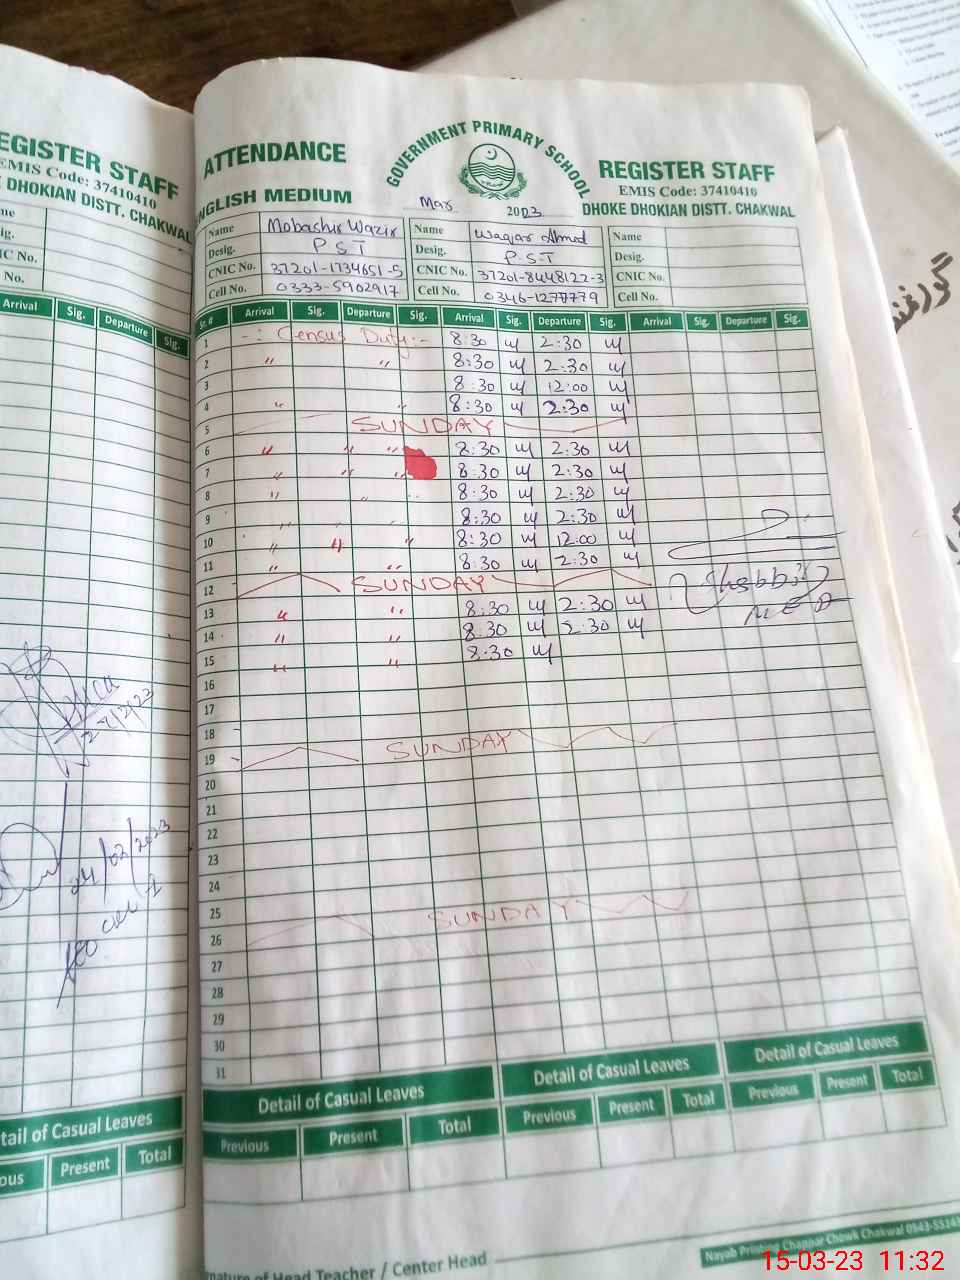 EGISTER STAFF
EMIS Code: 37410410
E DHOKIAN DISTT. CHAKWAL
me
ig.
IC No.
No.
Arrival Sig. Departure Sig.
24/02/2023
tail of Casual Leaves
ous Present Total
ATTENDANCE GOVERNMENT PRIMARY SCHOOL REGISTER STAFF
EMIS Code: 37410410
NGLISH MEDIUM Mar 2023 DHOKE DHOKIAN DISTT. CHAKWAL
Name Mobashir Wazir Name Waqar Ahmad Name
Desig. P S T Desig. P S T Desig.
CNIC No. 37201-1734651-5 CNIC No. 37201-8448122-3 CNIC No.
Cell No. 0333-5902917 Cell No. 0346-1277779 Cell No.
Sr. # Arrival Sig. Departure Sig. Arrival Sig. Departure Sig. Arrival Sig. Departure Sig.
1 -: Census Duty:- 8:30 2:30
2 " " 8:30 2:30
3 8:30 12:00
4 " " 8:30 2:30
5 SUNDAY
6 " " " 8:30 2:30
7 " " " 8:30 2:30
8 " " 8:30 2:30
9 " " 8:30 2:30
10 " " " 8:30 12:00
11 " " 8:30 2:30
12 SUNDAY
13 " " 8:30 2:30
14 " " 8:30 2:30
15 " " 8:30
16
17
18
19 SUNDAY
20
21
22
23
24
25
26 SUNDAY
27
28
29
30
31
Detail of Casual Leaves Detail of Casual Leaves Detail of Casual Leaves
Previous Present Total Previous Present Total Previous Present Total
nature of Head Teacher / Center Head
Nayab Printing Chappar Chowk Chakwal 0543-55143
15-03-23 11:32